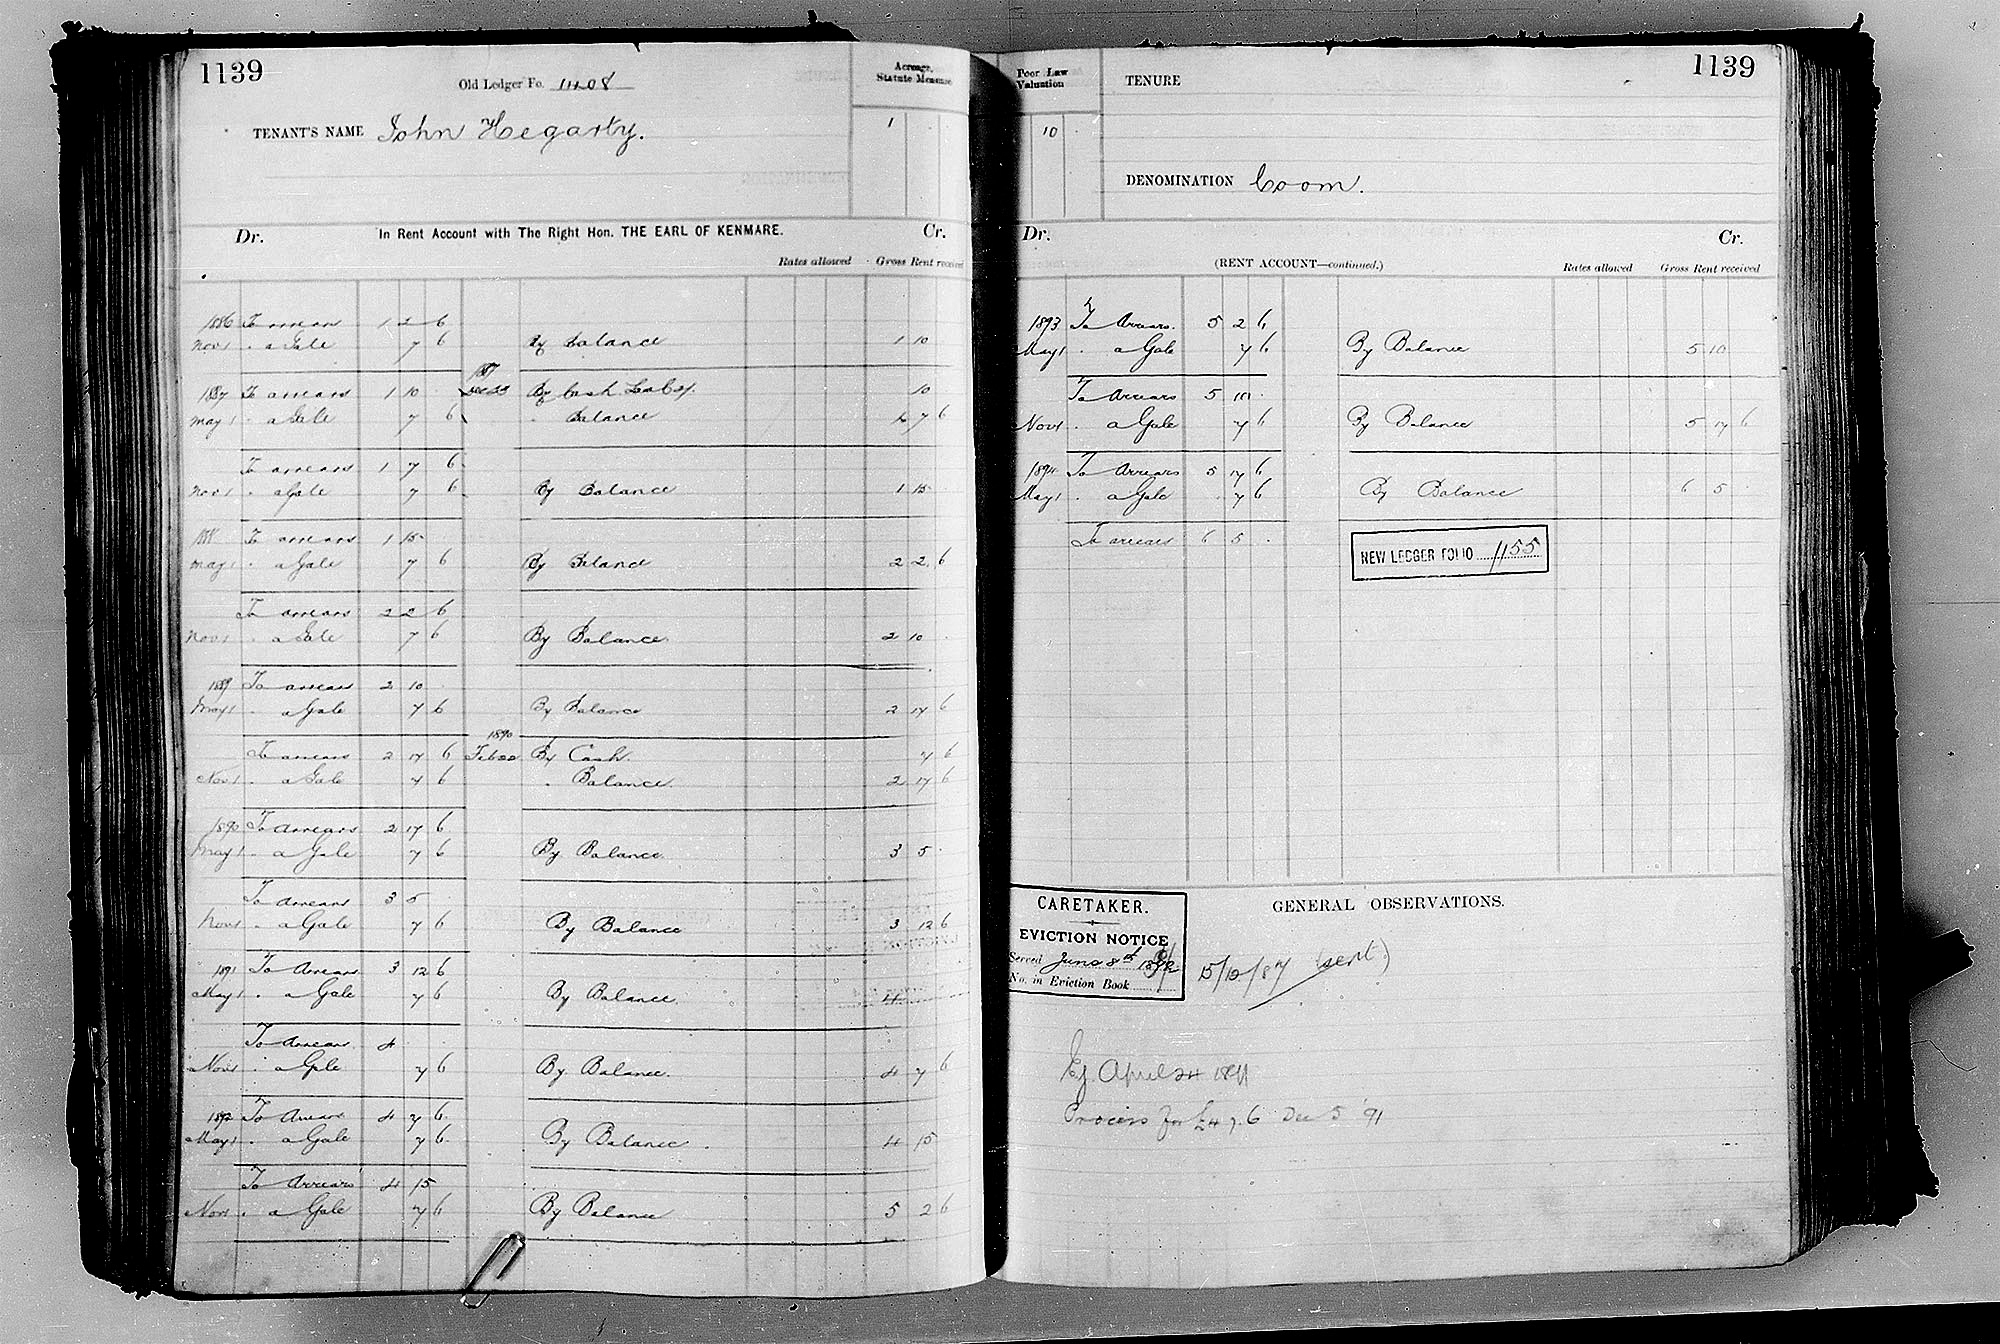 1139
Old Ledger Fo. 1408
Acreage, Statute Measure
TENANT'S NAME John Hegarty.
1
Dr. In Rent Account with The Right Hon. THE EARL OF KENMARE. Cr.
Rates allowed Gross Rent received
1886 To arrears 1 2 6
Nov 1 " a Gale 7 6 By Balance 1 10
1887 To arrears 1 10 1887 Dec 23 By Cash 10
May 1 " a Gale 7 6 " Balance 1 7 6
To arrears 1 7 6
Nov 1 " a Gale 7 6 By Balance 1 15
1888 To arrears 1 15
May 1 " a Gale 7 6 By Balance 2 2 6
To arrears 2 2 6
Nov 1 " a Gale 7 6 By Balance 2 10
1889 To arrears 2 10
May 1 " a Gale 7 6 By Balance 2 17 6
To arrears 2 17 6 1890 Feb 22 By Cash 7 6
Nov 1 " a Gale 7 6 " Balance 2 17 6
1890 To Arrears 2 17 6
May 1 " a Gale 7 6 By Balance 3 5
To Arrears 3 5
Nov 1 " a Gale 7 6 By Balance 3 12 6
1891 To Arrears 3 12 6
May 1 " a Gale 7 6 By Balance 4
To Arrears 4
Nov 1 " a Gale 7 6 By Balance 4 7 6
1892 To Arrears 4 7 6
May 1 " a Gale 7 6 By Balance 4 15
To Arrears 4 15
Nov 1 " a Gale 7 6 By Balance 5 2 6
1139
Poor Law Valuation
TENURE
10
DENOMINATION Coom.
Dr. Cr.
(RENT ACCOUNT—continued.) Rates allowed Gross Rent received
1893 To Arrears 5 2 6
May 1 " a Gale 7 6 By Balance 5 10
To Arrears 5 10
Nov 1 " a Gale 7 6 By Balance 5 17 6
1894 To Arrears 5 17 6
May 1 " a Gale 7 6 By Balance 6 5
To arrears 6 5
NEW LEDGER FOLIO 1155
CARETAKER.
EVICTION NOTICE
Served June 8th
No. in Eviction Book
GENERAL OBSERVATIONS.
15/10/87 (sent)
April 24
Process for £4 7. 6 Dec 5 '91